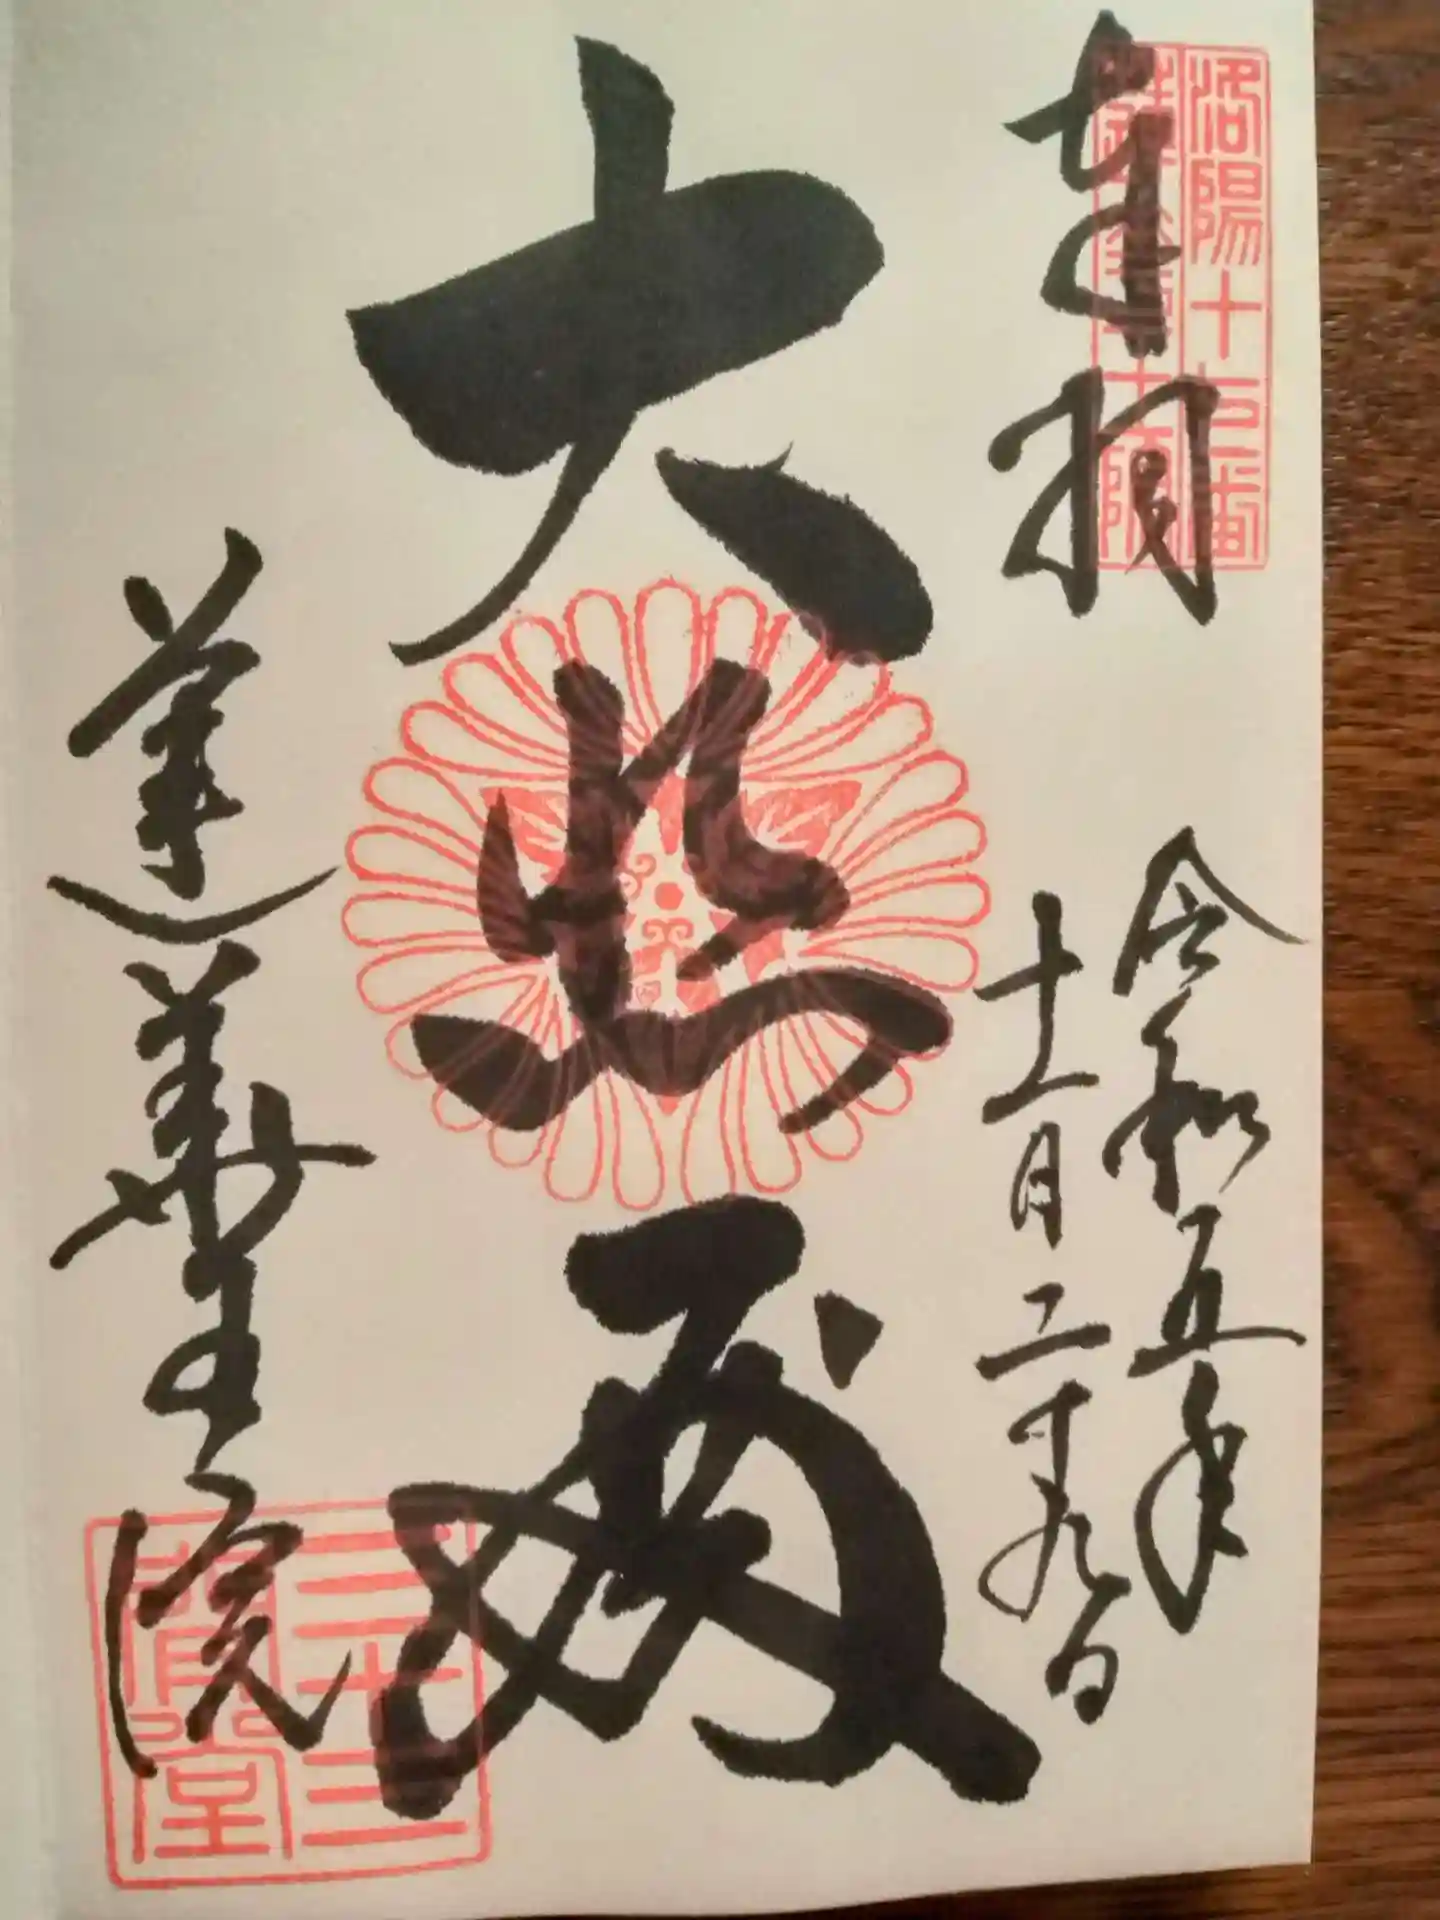 奉拝
洛陽十七番
令和五年
十一月二十九日
大悲殿
蓮華王院
三十三
間堂